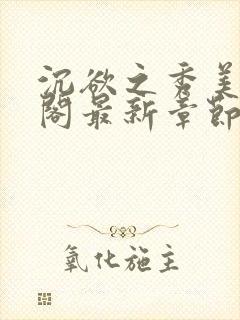 沉欲之秀美
阁最新章节
氧化施主